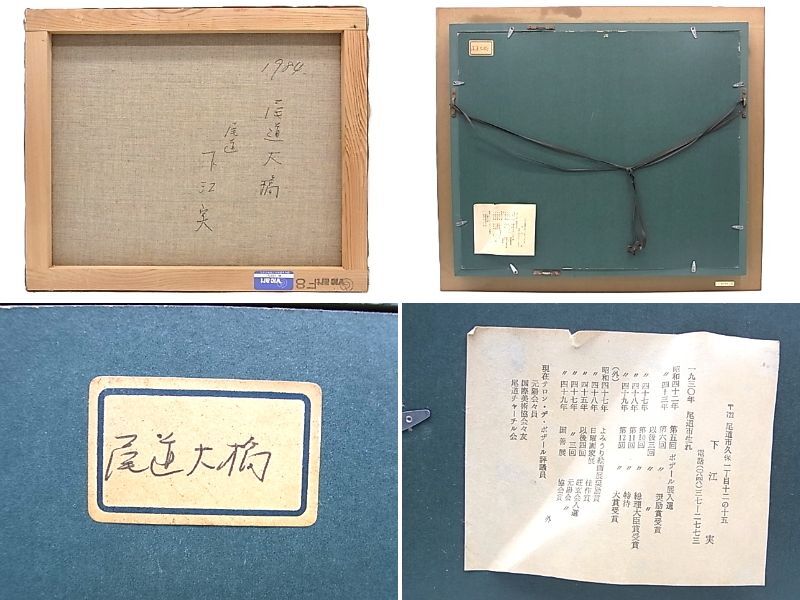 1984.
尾道大橋
尾道
下江実
F8
尾道大橋
尾道大橋
下江 実
尾道市久保一丁目十二の十五
一九三〇年 尾道市生れ
昭和四十二年 第五回 ボザール展入選
〃四十三年 第六回 〃 奨励賞受賞
〃四十七年 第10回 〃
〃四十八年 第11回 〃 総理大臣賞受賞
〃四十九年 第12回 特待 大賞受賞
(外)
昭和四十七年 よみうり絵画展奨励賞
〃四十八年 日曜画家展 佳作賞
〃四十五年 以後四回
〃四十七年 〃三回 元陽会 〃
〃四十九年 国善展 協会賞 外
現在サロン・デ・ボザール評議員
元陽会々員
国際美術協会々友
尾道チャーチル会